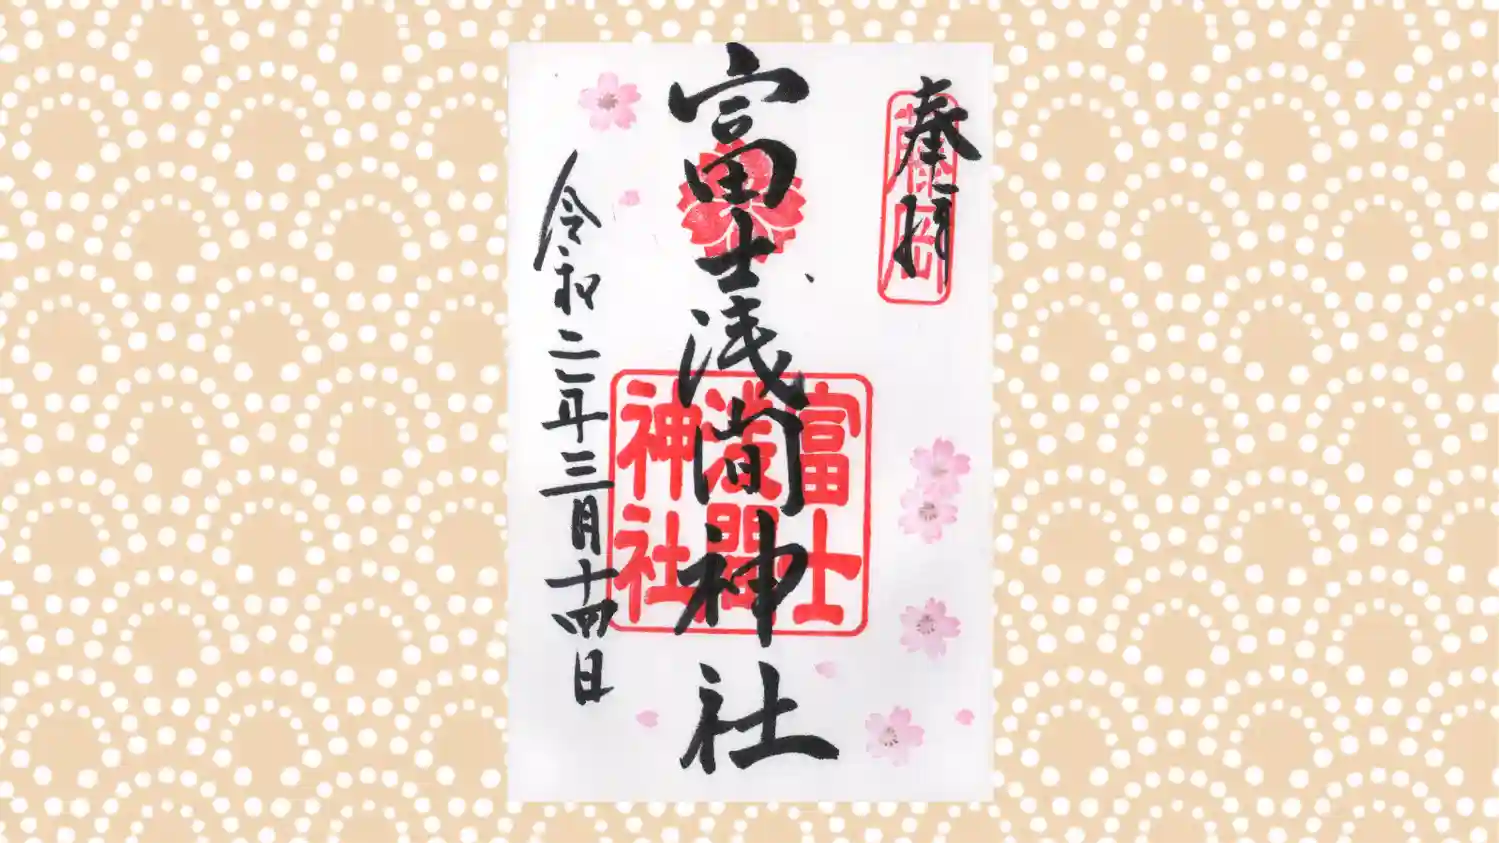 奉拝
藤岡
富士浅間神社
富士
浅間
神社
令和二年三月十四日